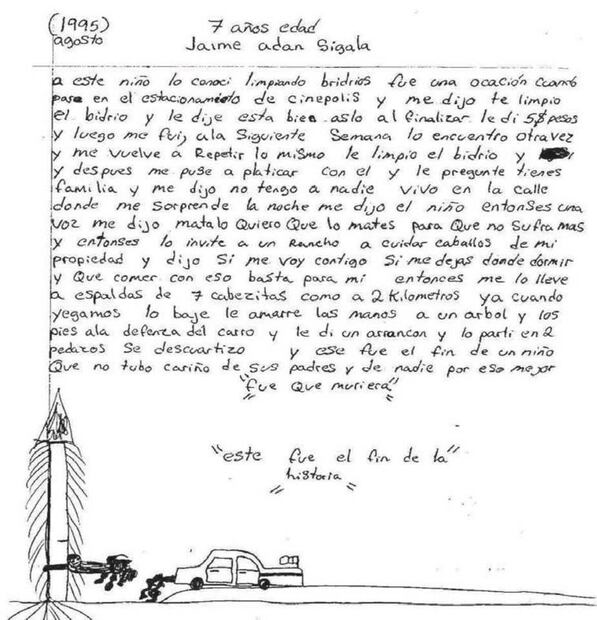 (1995) 7 años edad
agosto Jaime adan Sigala
a este niño lo conoci limpiando bridrios fue una ocación cuando
pase en el estacionamiento de cinepolis y me dijo te limpio
el bidrio y le dije esta bien aslo al finalizar le di 5$ pesos
y luego me fui, ala Siguiente Semana lo encuentro otra vez
y me vuelve a Repetir lo mismo le limpio el bidrio y
y despues me puse a platicar con el y le pregunte tienes
familia y me dijo no tengo a nadie vivo en la calle
donde me sorprende la noche me dijo el niño entonses una
voz me dijo matalo Quiero Que lo mates para Que no Sufra mas
y entonses lo invite a un Rancho a cuidar caballos de mi
propiedad y dijo Si me voy contigo Si me dejas donde dormir
y Que comer con eso basta para mi entonces me lo lleve
a espaldas de 7 cabezitas como a 2 Kilometros ya cuando
yegamos lo baje le amarre las manos a un arbol y los
pies ala defenza del carro y le di un arrancon y lo parti en 2
pedazos Se descuartizo y ese fue el fin de un niño
Que no tubo cariño de sus padres y de nadie por eso mejor
"fue Que muriera"
"este fue el fin de la"
"historia"